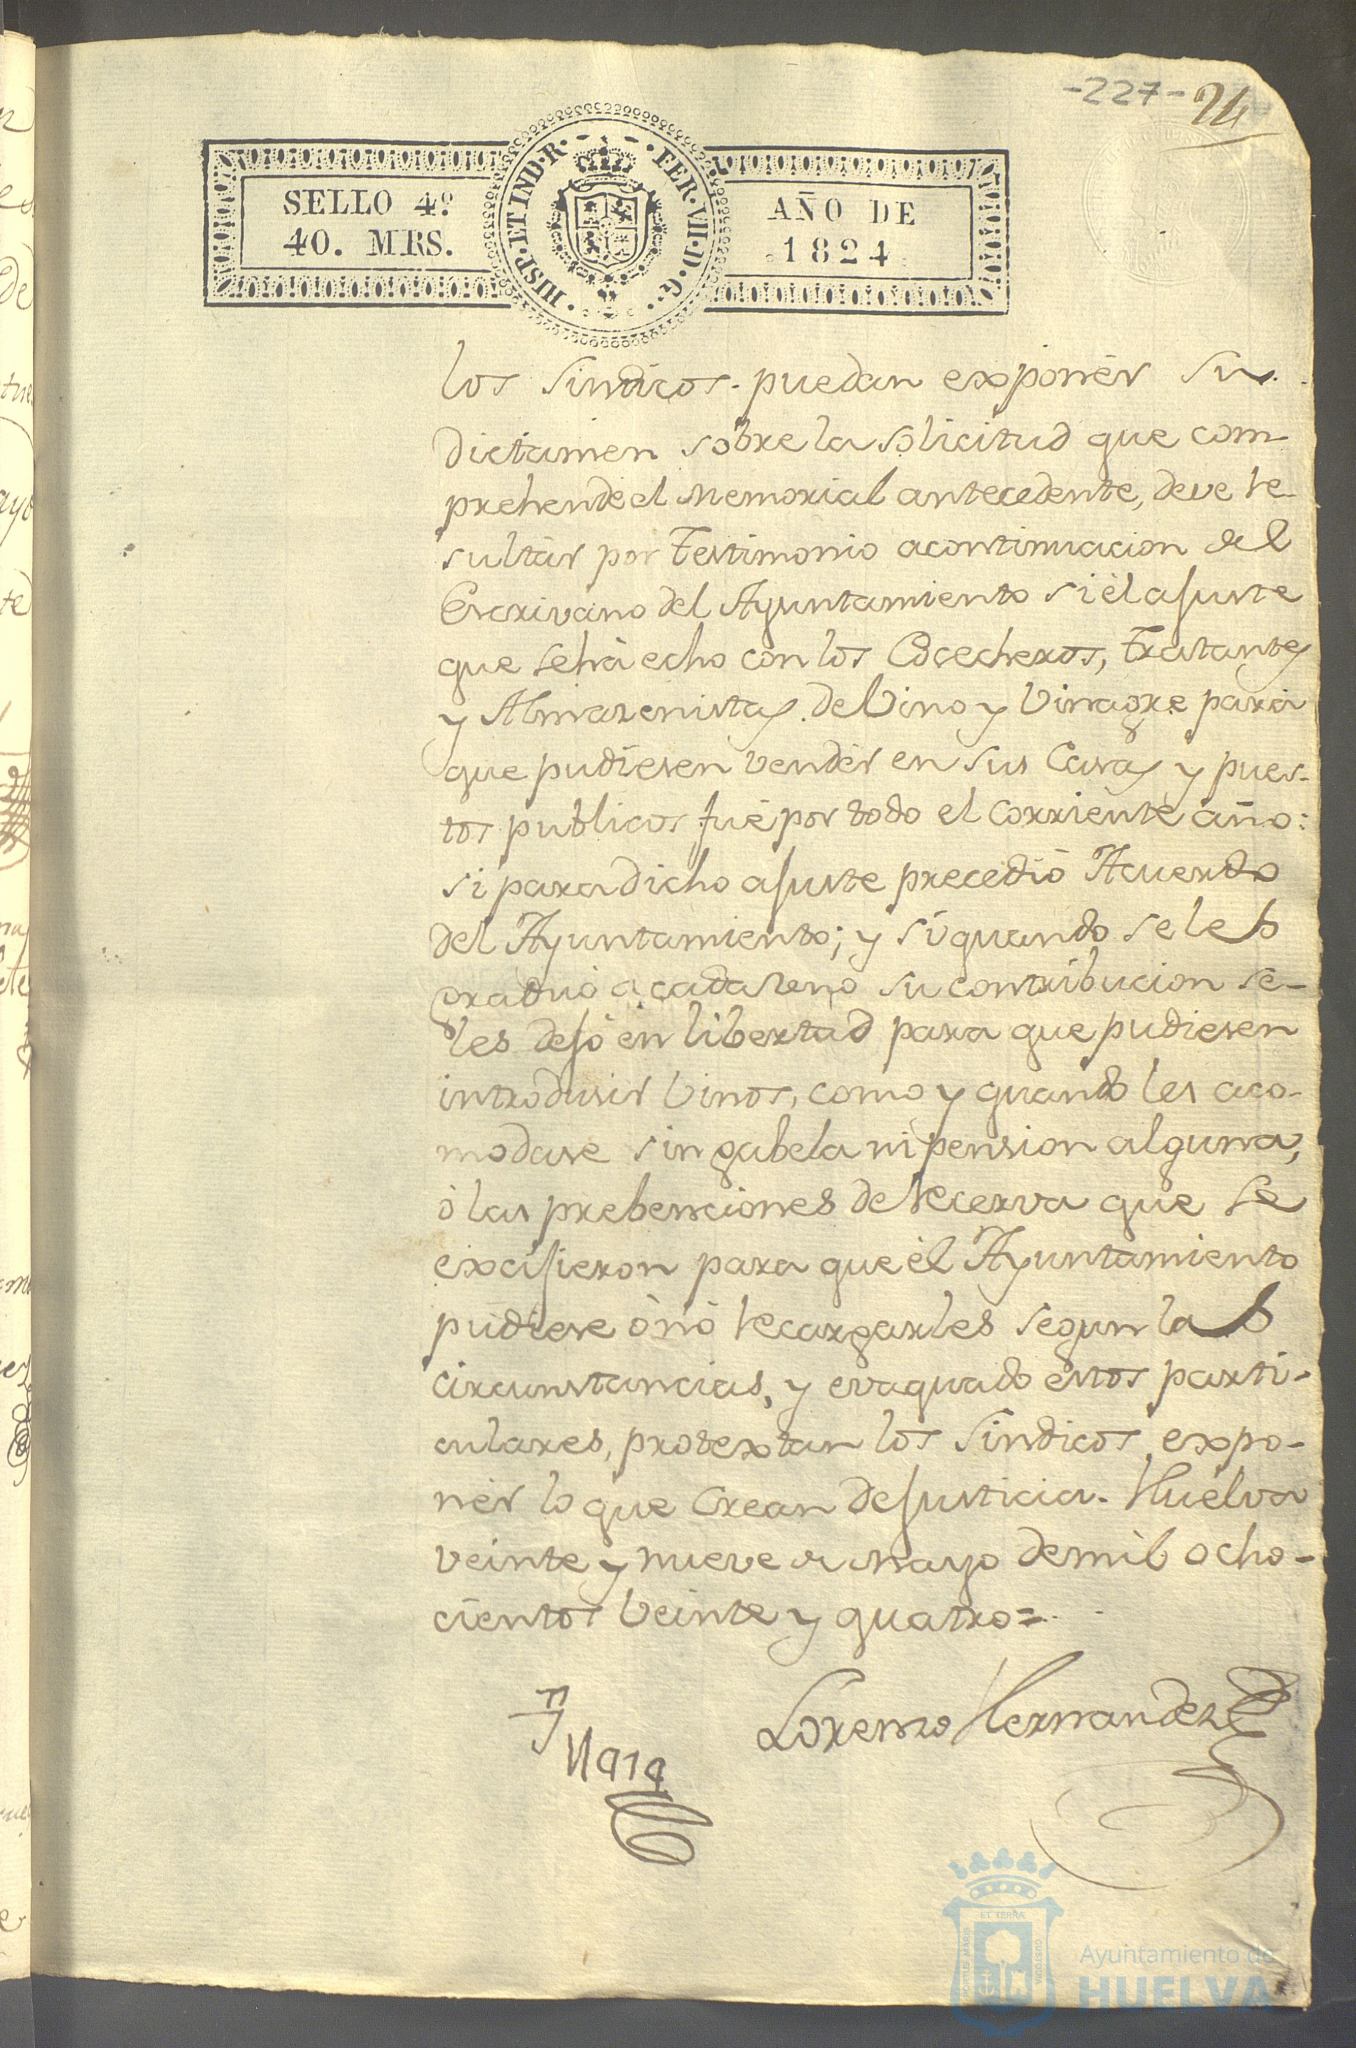 -227- 24
SELLO 4º
40. MRS.
HISP. ET IND. R. FER. VII. D. G.
AÑO DE
1824
los Sindicos puedan exponér su
dictamen sobre la solicitud que com-
prehende el Memorial antecedente, deve re-
sultár por Testimonio acontinuacion del
Escrivano del Ayuntamiento si él ajuste
que se há echo con los Cosecheros, tratantes
y Almazenistas de Vino y Vinagre para
que pudiesen vendér en sus Casas y pues-
tos publicos fué por todo el corriente año:
si para dicho ajuste precedió Acuerdo
del Ayuntamiento; y si quando se les
graduó a cada uno su contribucion se-
les dejó en libertad para que pudiesen
introdusir Vinos, como y quando les aco-
modase sin gabela ni pension alguna,
ó las prebenciones de recerva que se
excijieron para que él Ayuntamiento
pudiese ó nó recargarles segun las
circunstancias, y evaquado estos parti-
culares, protextan los Sindicos expo-
nér lo que Crean de justicia. Huelva
veinte y nueve de mayo de mil ocho-
cientos Veinte y quatro=
Lorenzo Hernandez
Ayuntamiento de
HUELVA